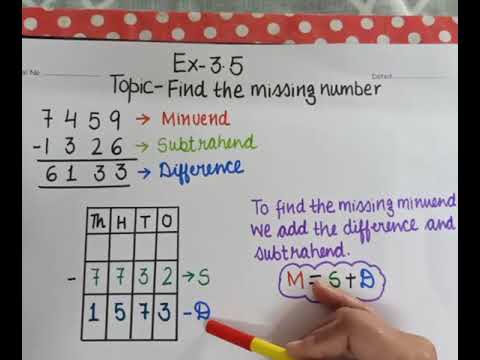 Ex-3.5
Topic- Find the missing number
7 4 5 9 → Minuend
-1 3 2 6 → Subtrahend
6 1 3 3 → Difference
Th H T O
- 7 7 3 2 → S
1 5 7 3 - D
To find the missing minuend
We add the difference and
subtrahend.
M = S + D